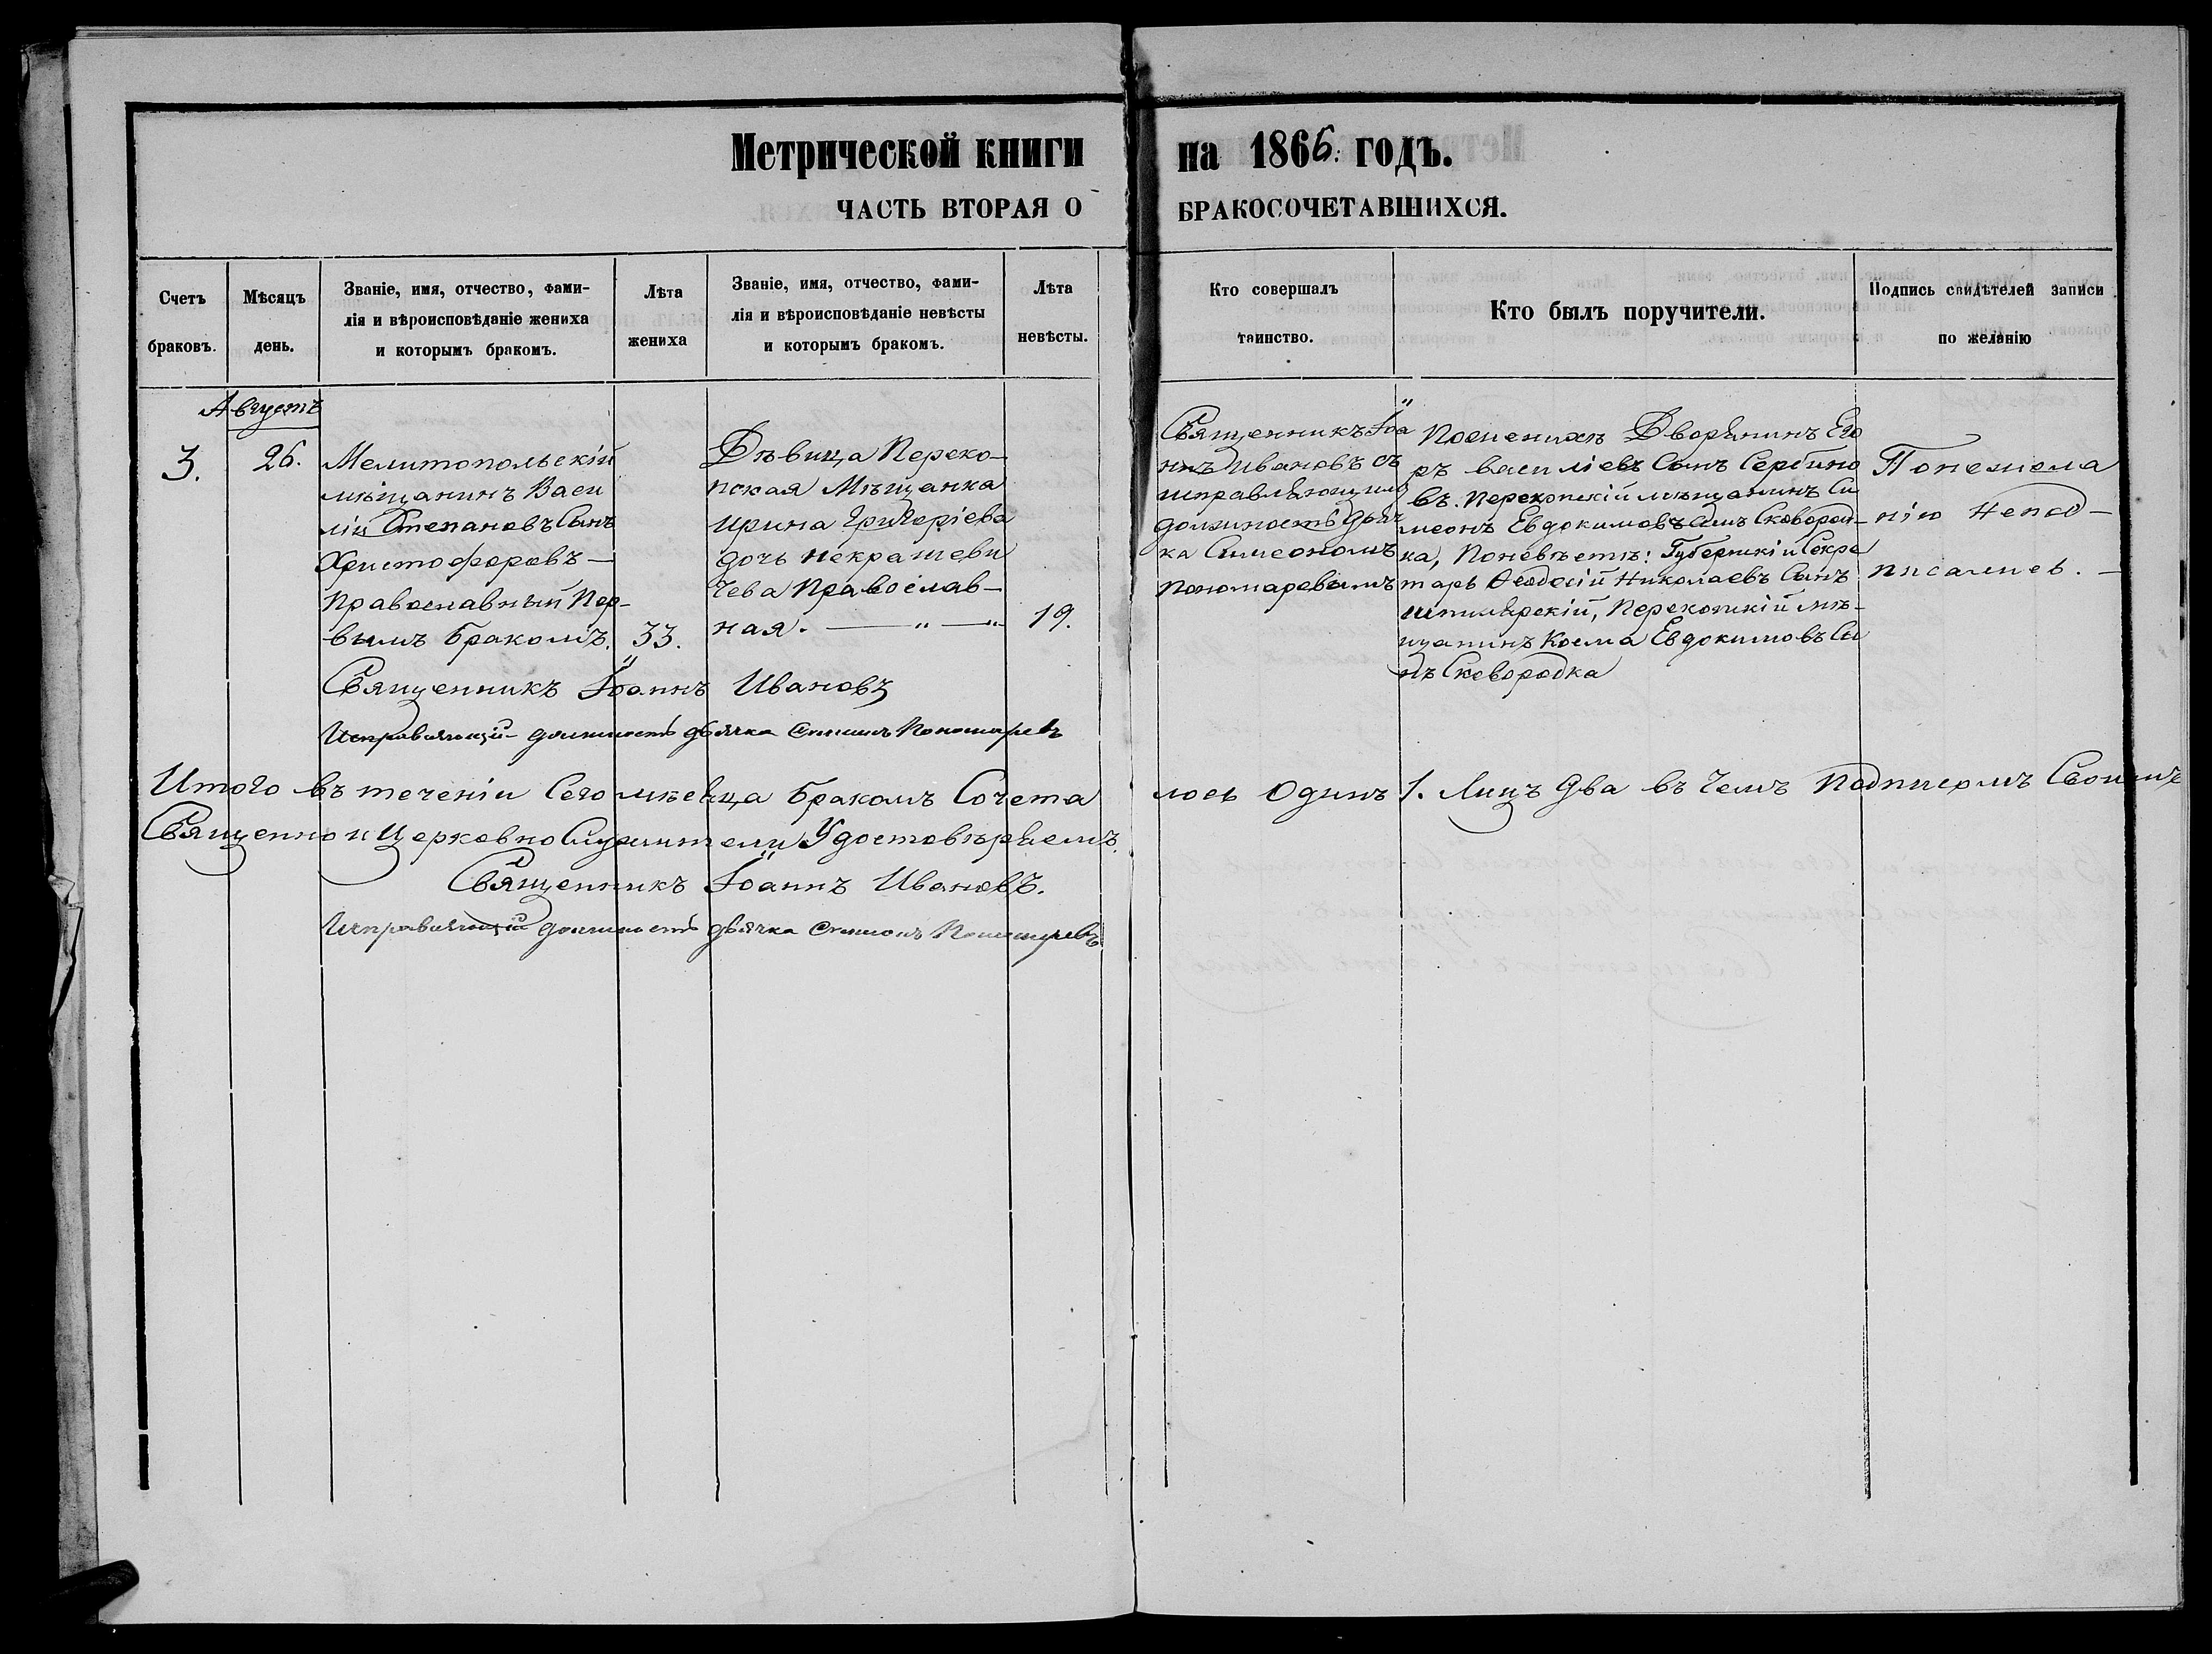 Метрической книги на 1866. годъ.
ЧАСТЬ ВТОРАЯ О БРАКОСОЧЕТАВШИХСЯ.
Счетъ браковъ.
Мѣсяцъ день.
Званіе, имя, отчество, фами-
лія и вѣроисповѣданіе жениха
и которымъ бракомъ.
Лѣта
жениха
Званіе, имя, отчество, фами-
лія и вѣроисповѣданіе невѣсты
и которымъ бракомъ.
Лѣта
невѣсты.
Кто совершалъ
таинство.
Кто былъ поручители.
Подпись свидѣтелей записи
по желанію
Августъ
3.
26.
Мелитопольскій
мѣщанинъ Васи
лій Степановъ Сынъ
Христофоровъ —
Православный Пер-
вымъ бракомъ.
33.
Дѣвица Переко-
пская Мѣщанка
Ирина Григоріева
дочь Некрашеви
чева Православ-
ная. — " — "
19.
Священникъ Іоа
ннъ Ивановъ съ
исправляющимъ
должность дьяч
ка Симеономъ
Пономаревымъ
Пожениха Дворянинъ Его
ръ Василіевъ Сынъ Сербино
въ. Перекопскій мѣщанинъ Си
меонъ Евдокимовъ Сынъ Сковород-
ка, Поневѣстѣ: Губернскій Секре
тарь Ѳеодосій Николаевъ Сынъ
Шпилярскій, Перекопскій мѣ-
щанинъ Косма Евдокимовъ Сы
нъ Сковородка
Понежела
нію Непод-
писались. —
Священникъ Іоаннъ Ивановъ
Исправляющій должность дьячка Симеонъ Пономаревъ
Итого въ теченіи Сего мѣсяца бракомъ Сочета лось Одинъ 1. Лицъ Два въ Чемъ Подписомъ Своимъ
Священно и Церковно Служители Удостовѣряемъ.
Священникъ Іоаннъ Ивановъ.
Исправляющій должность дьячка Симеонъ Пономаревъ